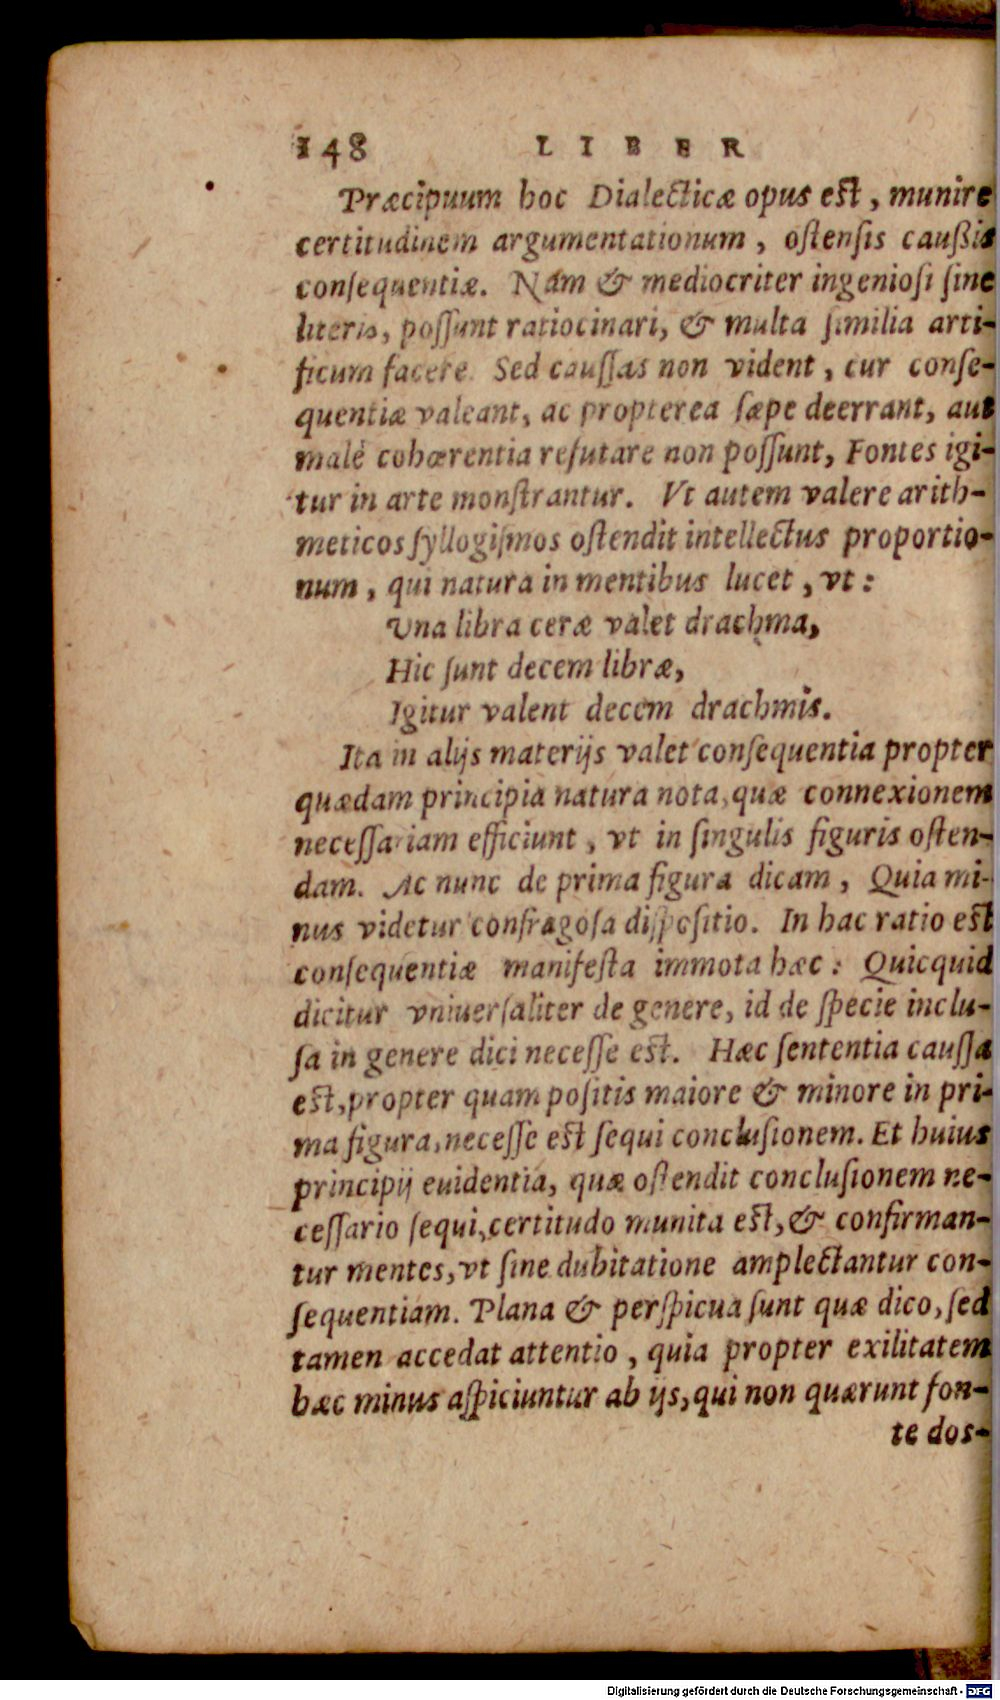 148 LIBER
Præcipuum hoc Dialecticæ opus est, munire
certitudinem argumentationum, ostensis caußis
consequentiæ. Nam & mediocriter ingeniosi sine
literis, possunt ratiocinari, & multa similia arti-
ficum facere. Sed caussas non vident, cur conse-
quentiæ valeant, ac propterea sæpe deerrant, aut
malè cohærentia refutare non possunt, Fontes igi-
tur in arte monstrantur. Vt autem valere arith-
meticos syllogismos ostendit intellectus proportio-
num, qui natura in mentibus lucet, vt:
Vna libra ceræ valet drachma,
Hic sunt decem libræ,
Igitur valent decem drachmis.
Ita in alijs materijs valet consequentia propter
quædam principia natura nota, quæ connexionem
necessariam efficiunt, vt in singulis figuris osten-
dam. Ac nunc de prima figura dicam, Quia mi-
nus videtur confragosa dispositio. In hac ratio est
consequentiæ manifesta immota hæc: Quicquid
dicitur vniuersaliter de genere, id de specie inclu-
sa in genere dici necesse est. Hæc sententia caussa
est, propter quam positis maiore & minore in pri-
ma figura, necesse est sequi conclusionem. Et huius
principij euidentia, quæ ostendit conclusionem ne-
cessario sequi, certitudo munita est, & confirman-
tur mentes, vt sine dubitatione amplectantur con-
sequentiam. Plana & perspicua sunt quæ dico, sed
tamen accedat attentio, quia propter exilitatem
hæc minus aspiciuntur ab ijs, qui non quærunt fon-
te dos-
Digitalisierung gefördert durch die Deutsche Forschungsgemeinschaft - DFG